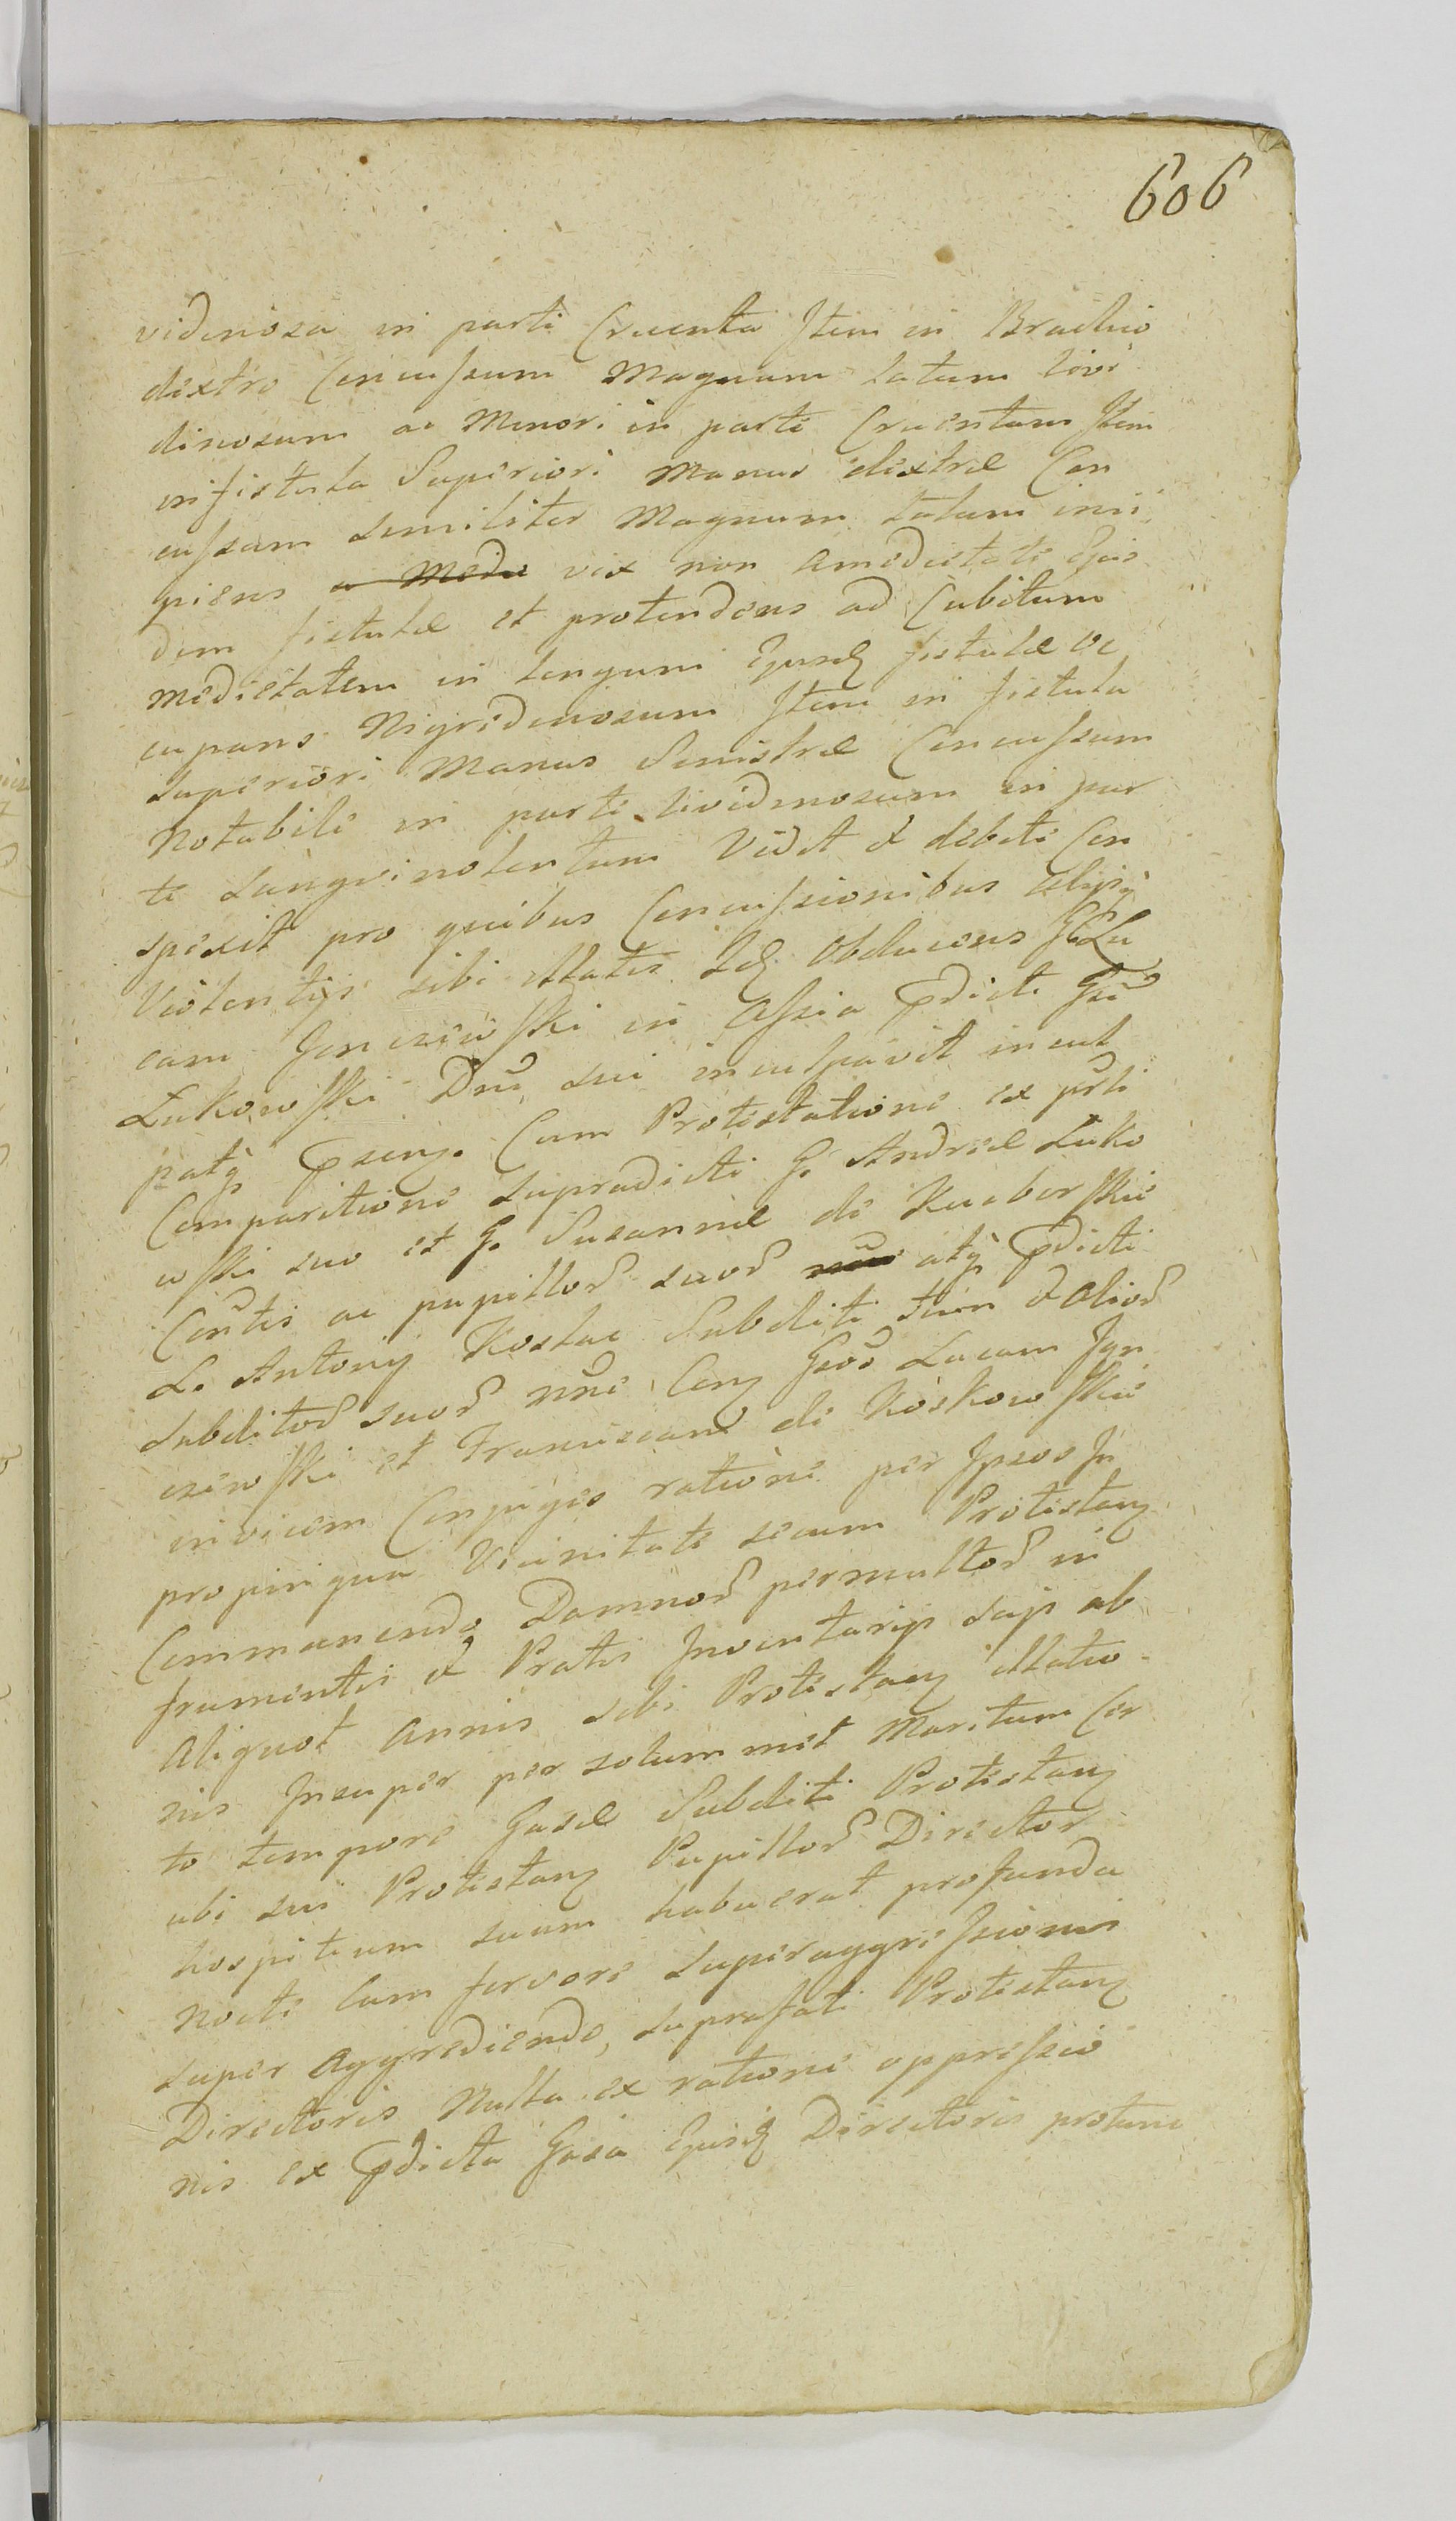 606
vidinosa in parte Cruenta Item in Brachio
dextro Concussum Magnum latum livi
dinosum ac Minori in parte Cruentum Item
in fistula Superiori Manus dextræ Con
cussum similiter Magnum latum inci
piens a Medie vix non Amedietate Ejus
dem fistulæ et protendens ad Cubitum
medietatem in longum Ejusd fistulæ oc
cupans Nigridinosum Item in fistula
Superiori Manus Sinistræ Concussum
Notabile in parte lividinosum in par
te Sangvinolentum Vidit et debite Con
spexit pro quibus Concussionibus alysq
Violentijs sibi illatis Idq Obducens G Lu
cam Jonczewski in Assia pdicti Gsi
Łukowski Dni sui inculpavit incul
patq psenz. Cum Protestatione ex prti
Comparitione supradicti G. Andreæ Łuko
wski suo et G. Susannæ de Kueborskie
Contis ac pupillor suor atq pdicti
L. Antonij Kostac Subditi sui et Alior
Subditor suor nne Conz Gsos Lucam Jon
czewski et Franciscam de Koskowskie
invicem Conjuges ratione per Ipsos In
propinqua Vicinitate secum Protestanz
Commanendo Damnor permultor in
frumentis et Pratis Inventarijs Saip ab
Aliquot Annis sibi Protestanz illatio
nis Insuper per solummet Maritum Cer
to tempore Gasæ Subditi Protestanz
ubi sui Protestanz Pupillor Director
hospitium suum habuerat profunda
Nocte Cum fervore Superaggressionis
super Aggrediendo, suprafati Protestanz
Directoris Nulla ex ratione oppressio
nis ex pdicta Gasa Ejusq Directoris protunc